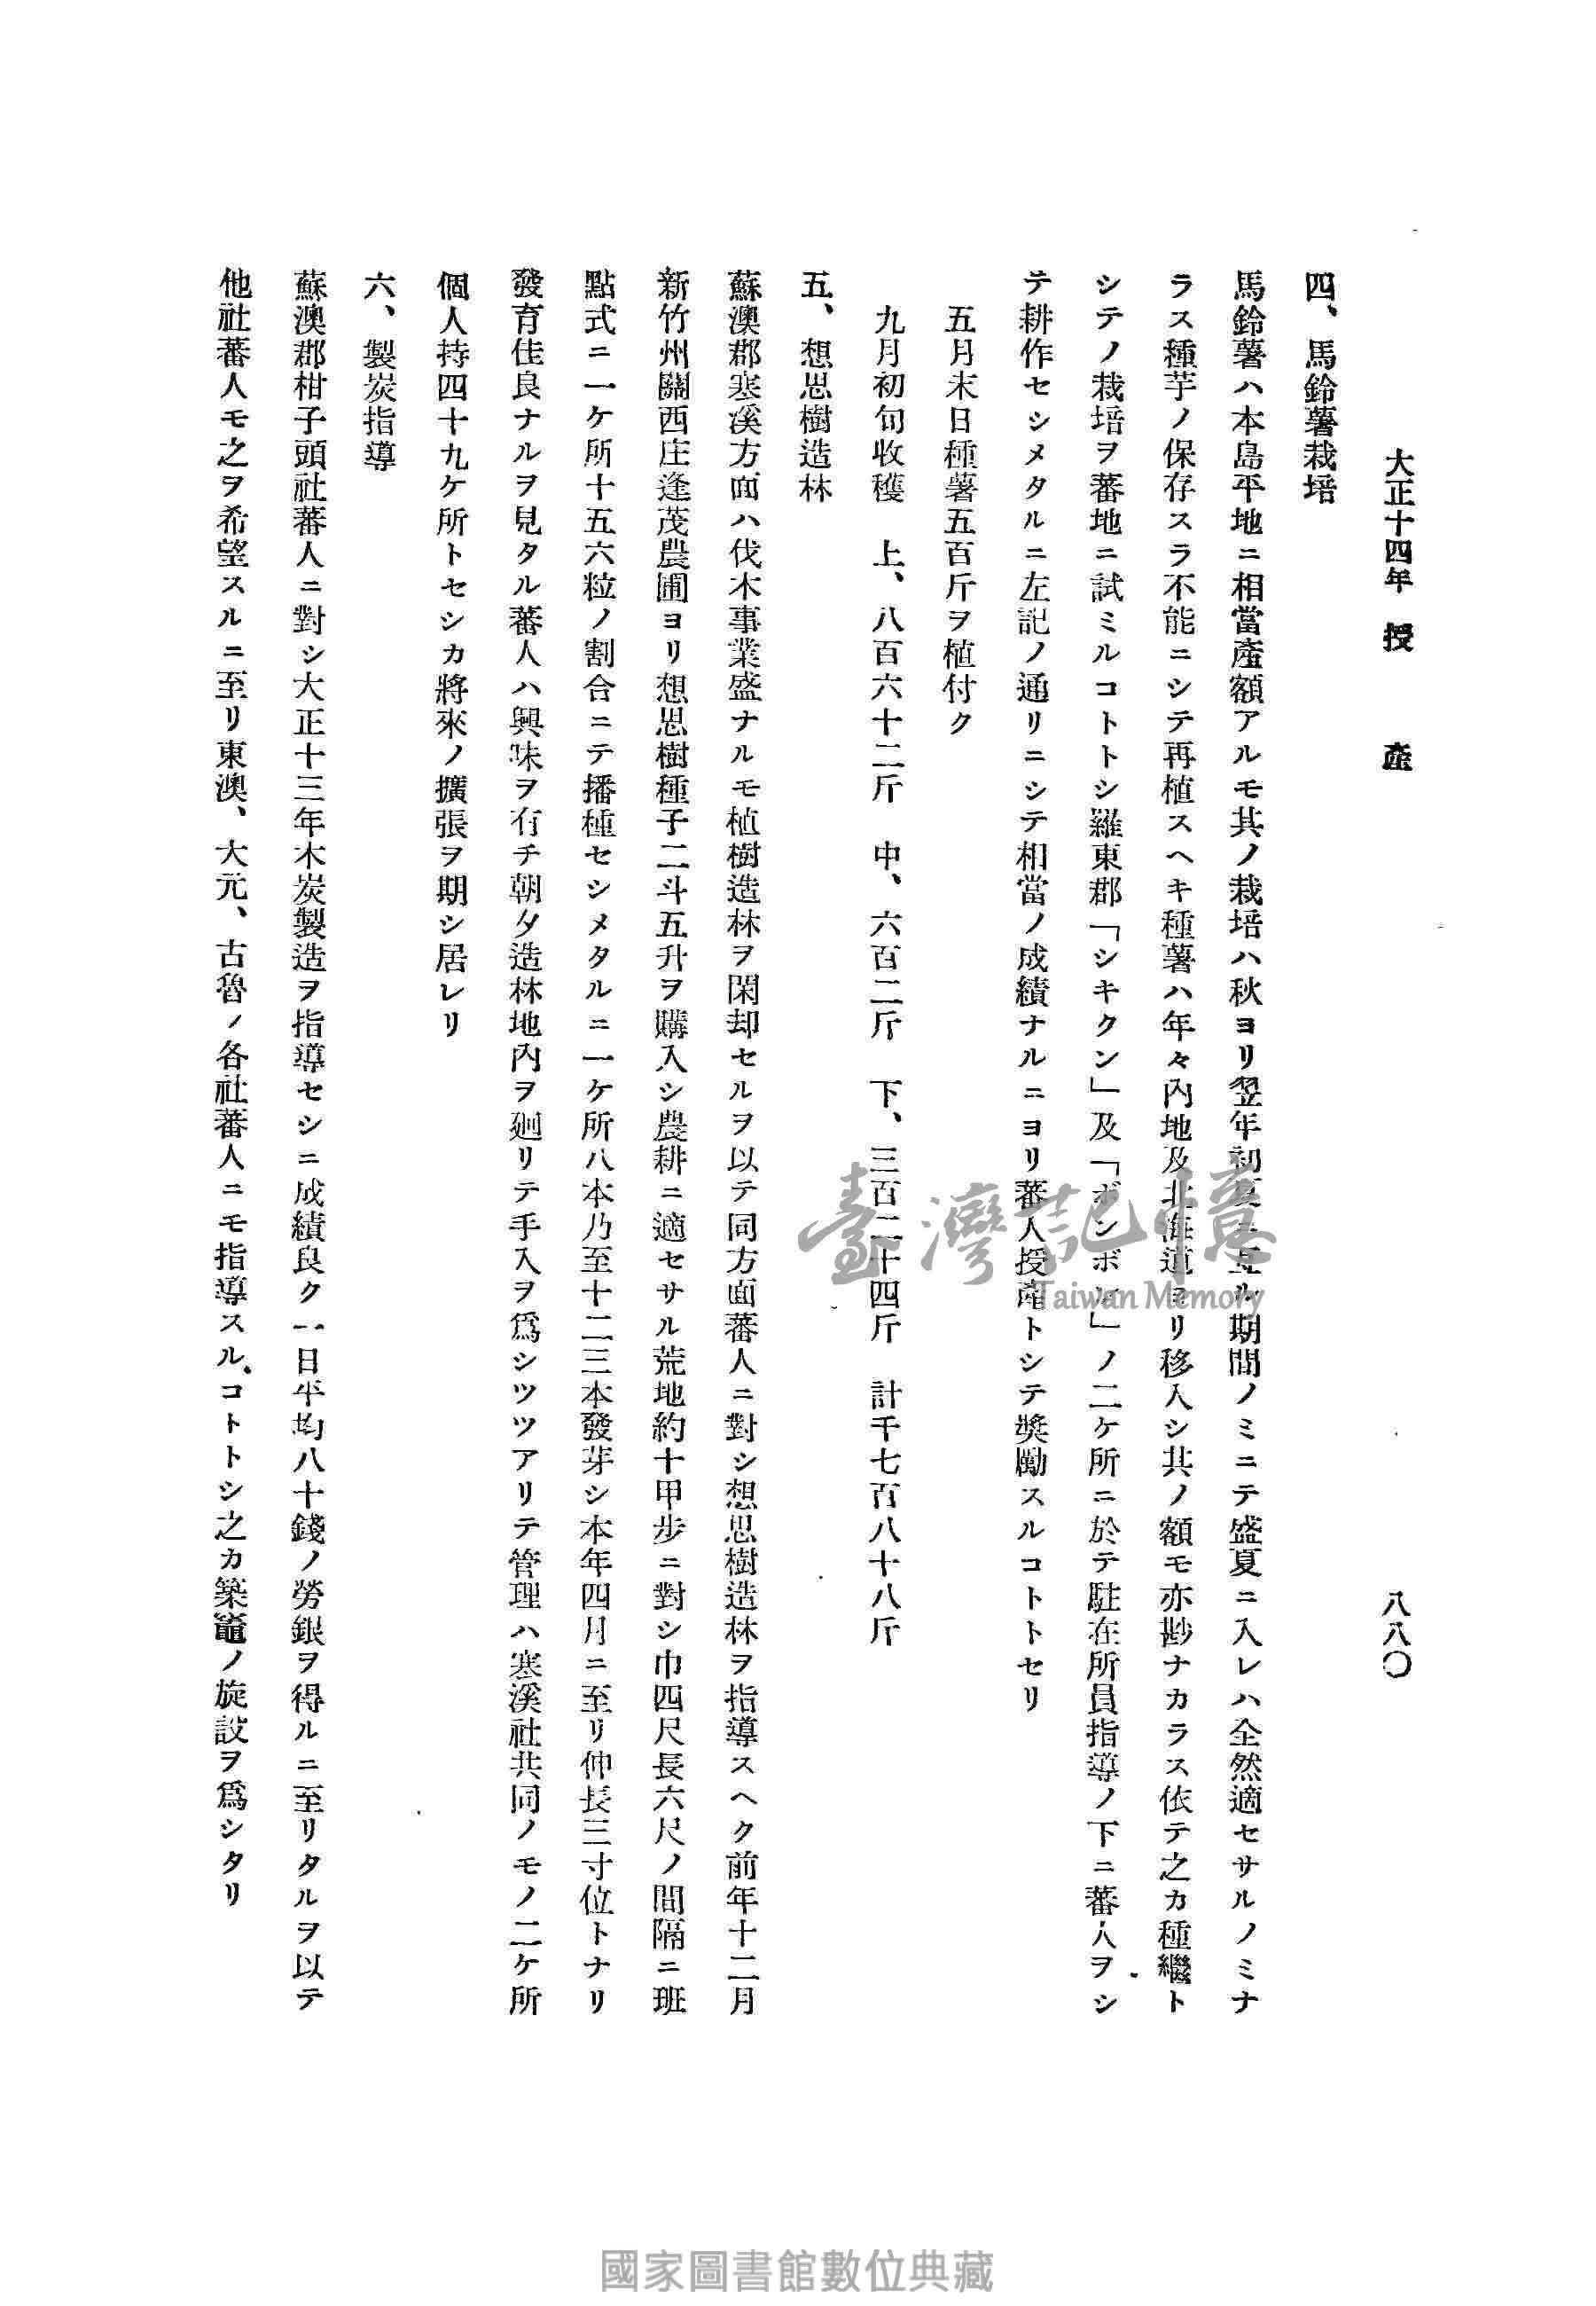 大正十四年 授產 八八〇
四、馬鈴薯栽培
馬鈴薯ハ本島平地ニ相當產額アルモ其ノ栽培ハ秋ヨリ翌年初夏ニ亙ル期間ノミニテ盛夏ニ入レハ全然適セサルノミナ
ラス種芋ノ保存スラ不能ニシテ再植スヘキ種薯ハ年々內地及北海道ヨリ移入シ其ノ額モ亦尠ナカラス依テ之カ種繼ト
シテノ栽培ヲ蕃地ニ試ミルコトトシ羅東郡「シキクン」及「ボンボン」ノ二ケ所ニ於テ駐在所員指導ノ下ニ蕃人ヲシ
テ耕作セシメタルニ左記ノ通リニシテ相當ノ成績ナルニヨリ蕃人授產トシテ獎勵スルコトトセリ
五月末日種薯五百斤ヲ植付ク
九月初旬收穫 上、八百六十二斤 中、六百二斤 下、三百二十四斤 計千七百八十八斤
五、想思樹造林
蘇澳郡寒溪方面ハ伐木事業盛ナルモ植樹造林ヲ閑却セルヲ以テ同方面蕃人ニ對シ想思樹造林ヲ指導スヘク前年十二月
新竹州關西庄逢茂農圃ヨリ想思樹種子二斗五升ヲ購入シ農耕ニ適セサル荒地約十甲步ニ對シ巾四尺長六尺ノ間隔ニ班
點式ニ一ケ所十五六粒ノ割合ニテ播種セシメタルニ一ケ所八本乃至十二三本發芽シ本年四月ニ至リ伸長三寸位トナリ
發育佳良ナルヲ見タル蕃人ハ興味ヲ有チ朝夕造林地內ヲ廻リテ手入ヲ爲シツツアリテ管理ハ寒溪社共同ノモノ二ケ所
個人持四十九ケ所トセシカ將來ノ擴張ヲ期シ居レリ
六、製炭指導
蘇澳郡柑子頭社蕃人ニ對シ大正十三年木炭製造ヲ指導セシニ成績良ク一日平均八十錢ノ勞銀ヲ得ルニ至リタルヲ以テ
他社蕃人モ之ヲ希望スルニ至リ東澳、大元、古魯ノ各社蕃人ニモ指導スルコトトシ之カ築竈ノ旋設ヲ爲シタリ
臺灣記憶
Taiwan Memory
國家圖書館數位典藏